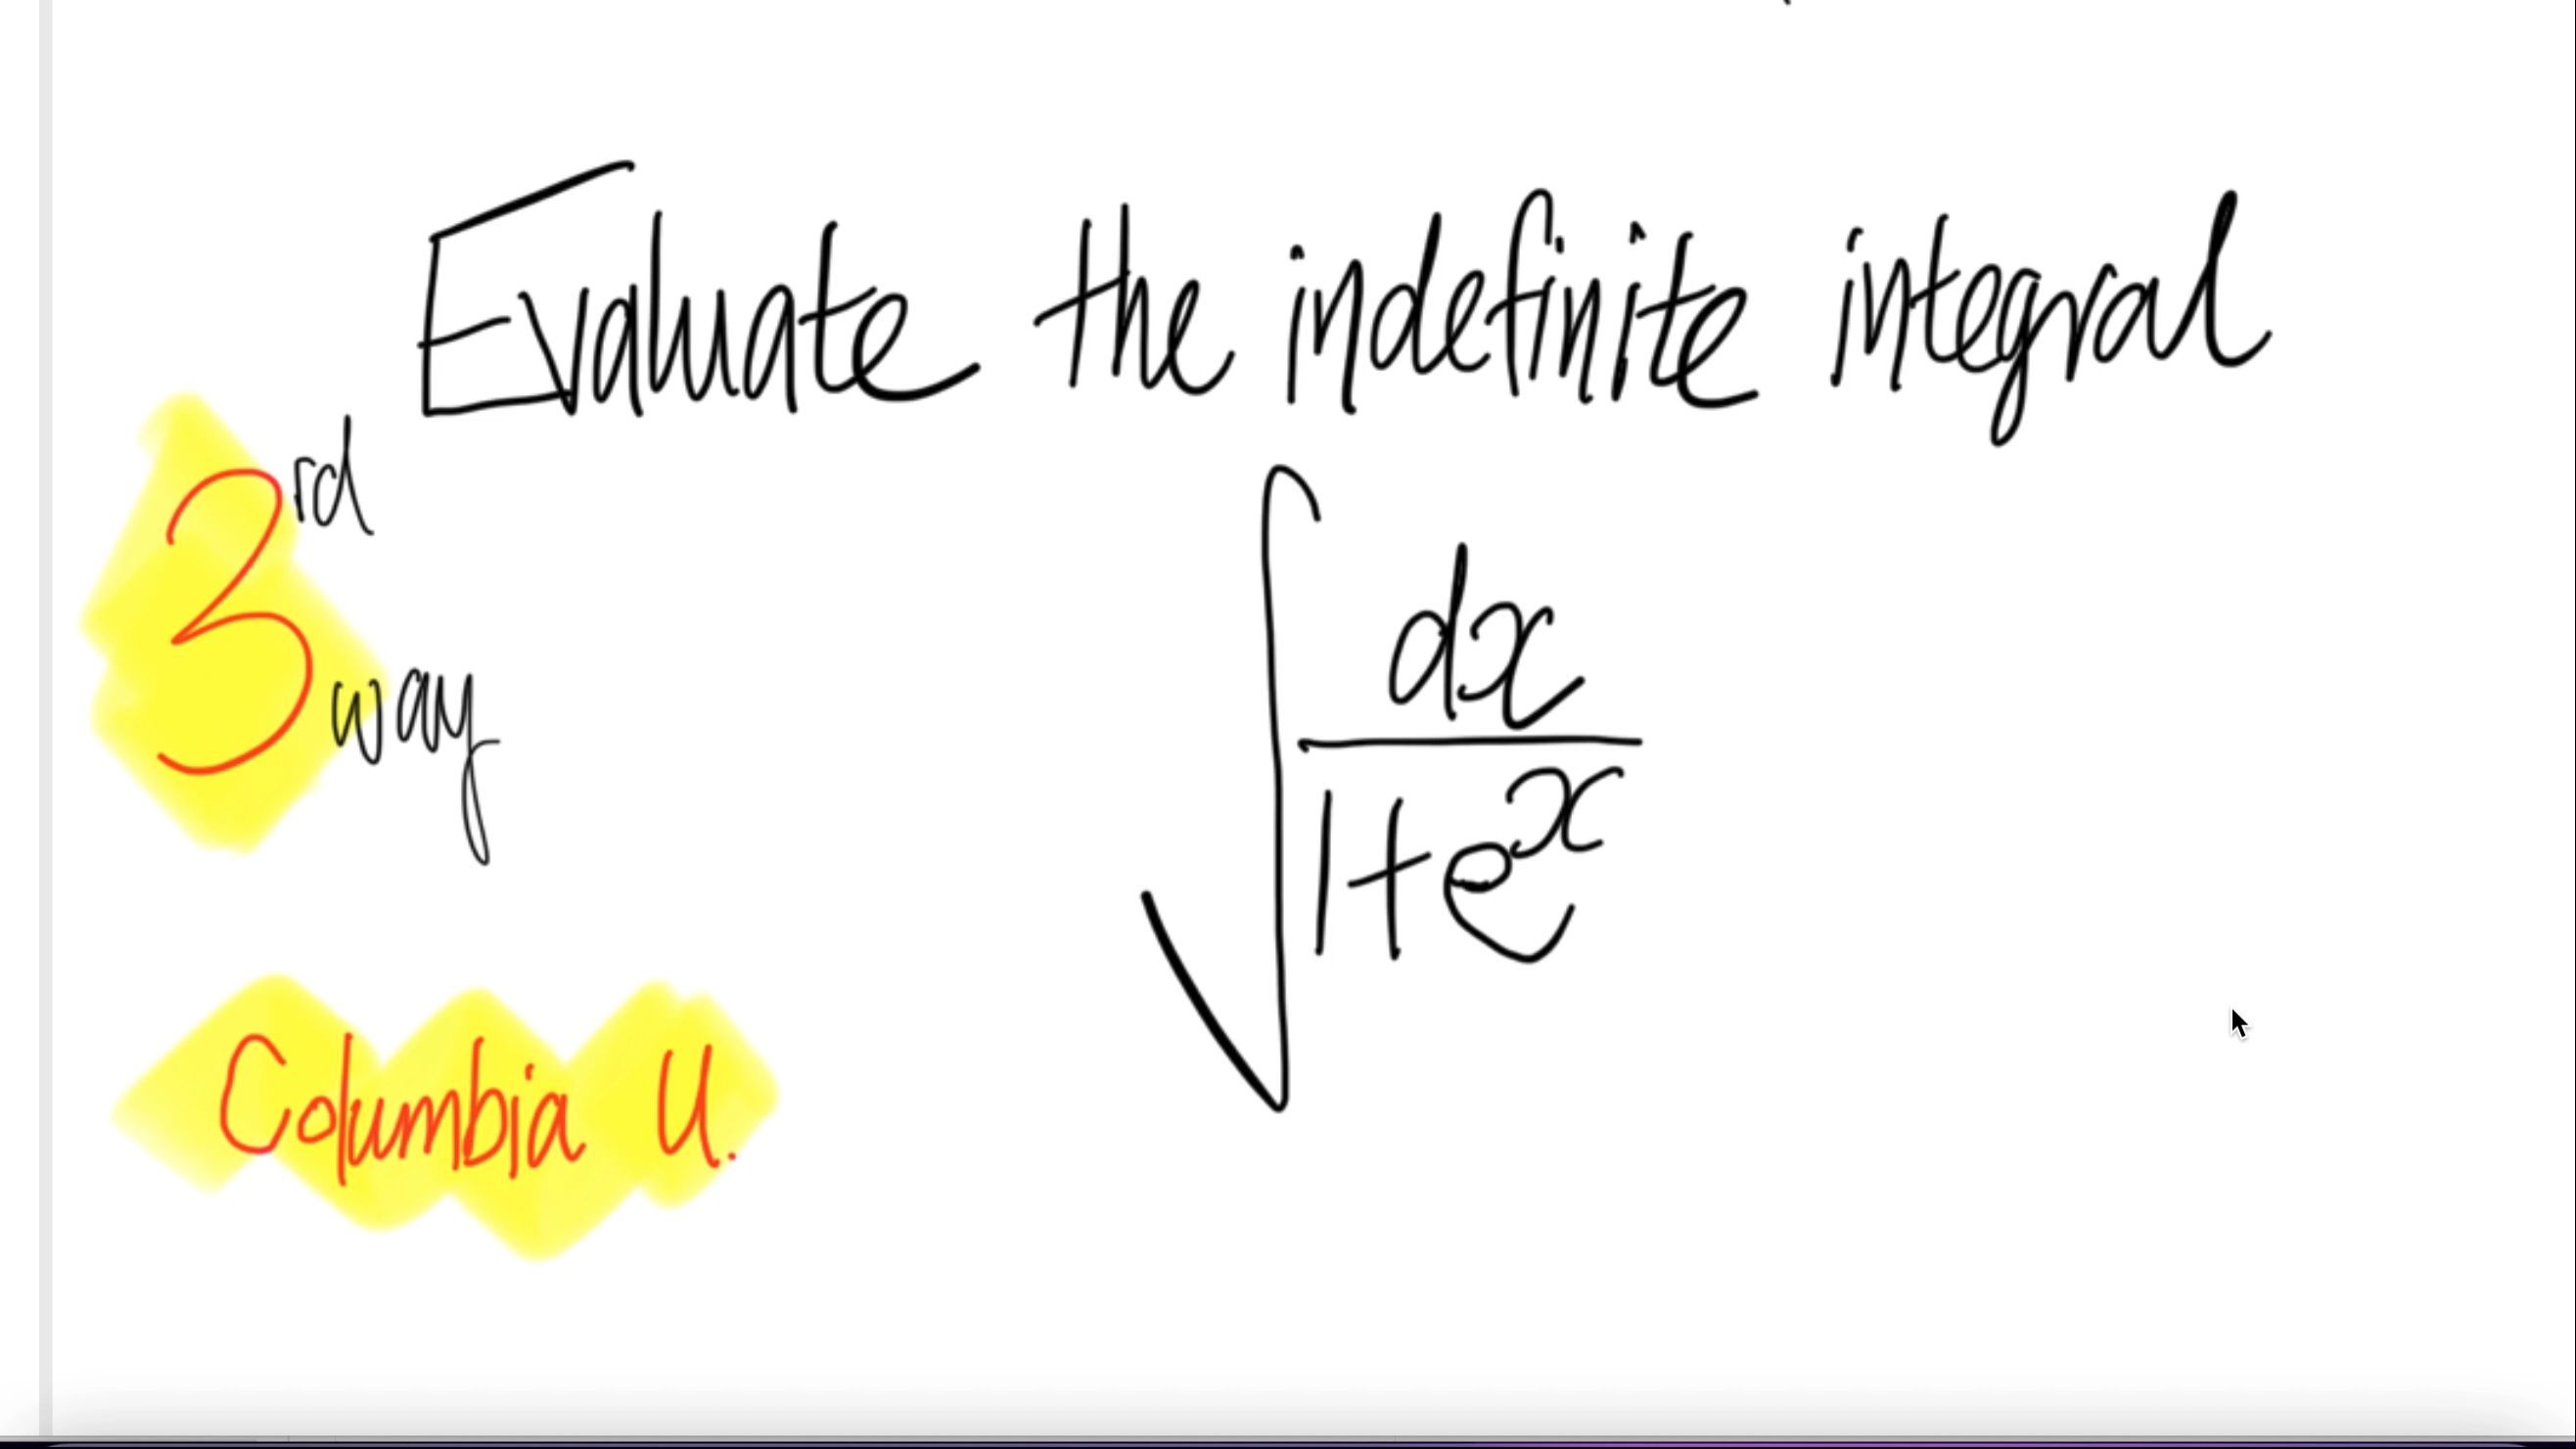 Evaluate the indefinite integral
3rd way
∫ dx
1+e^x
Columbia U.